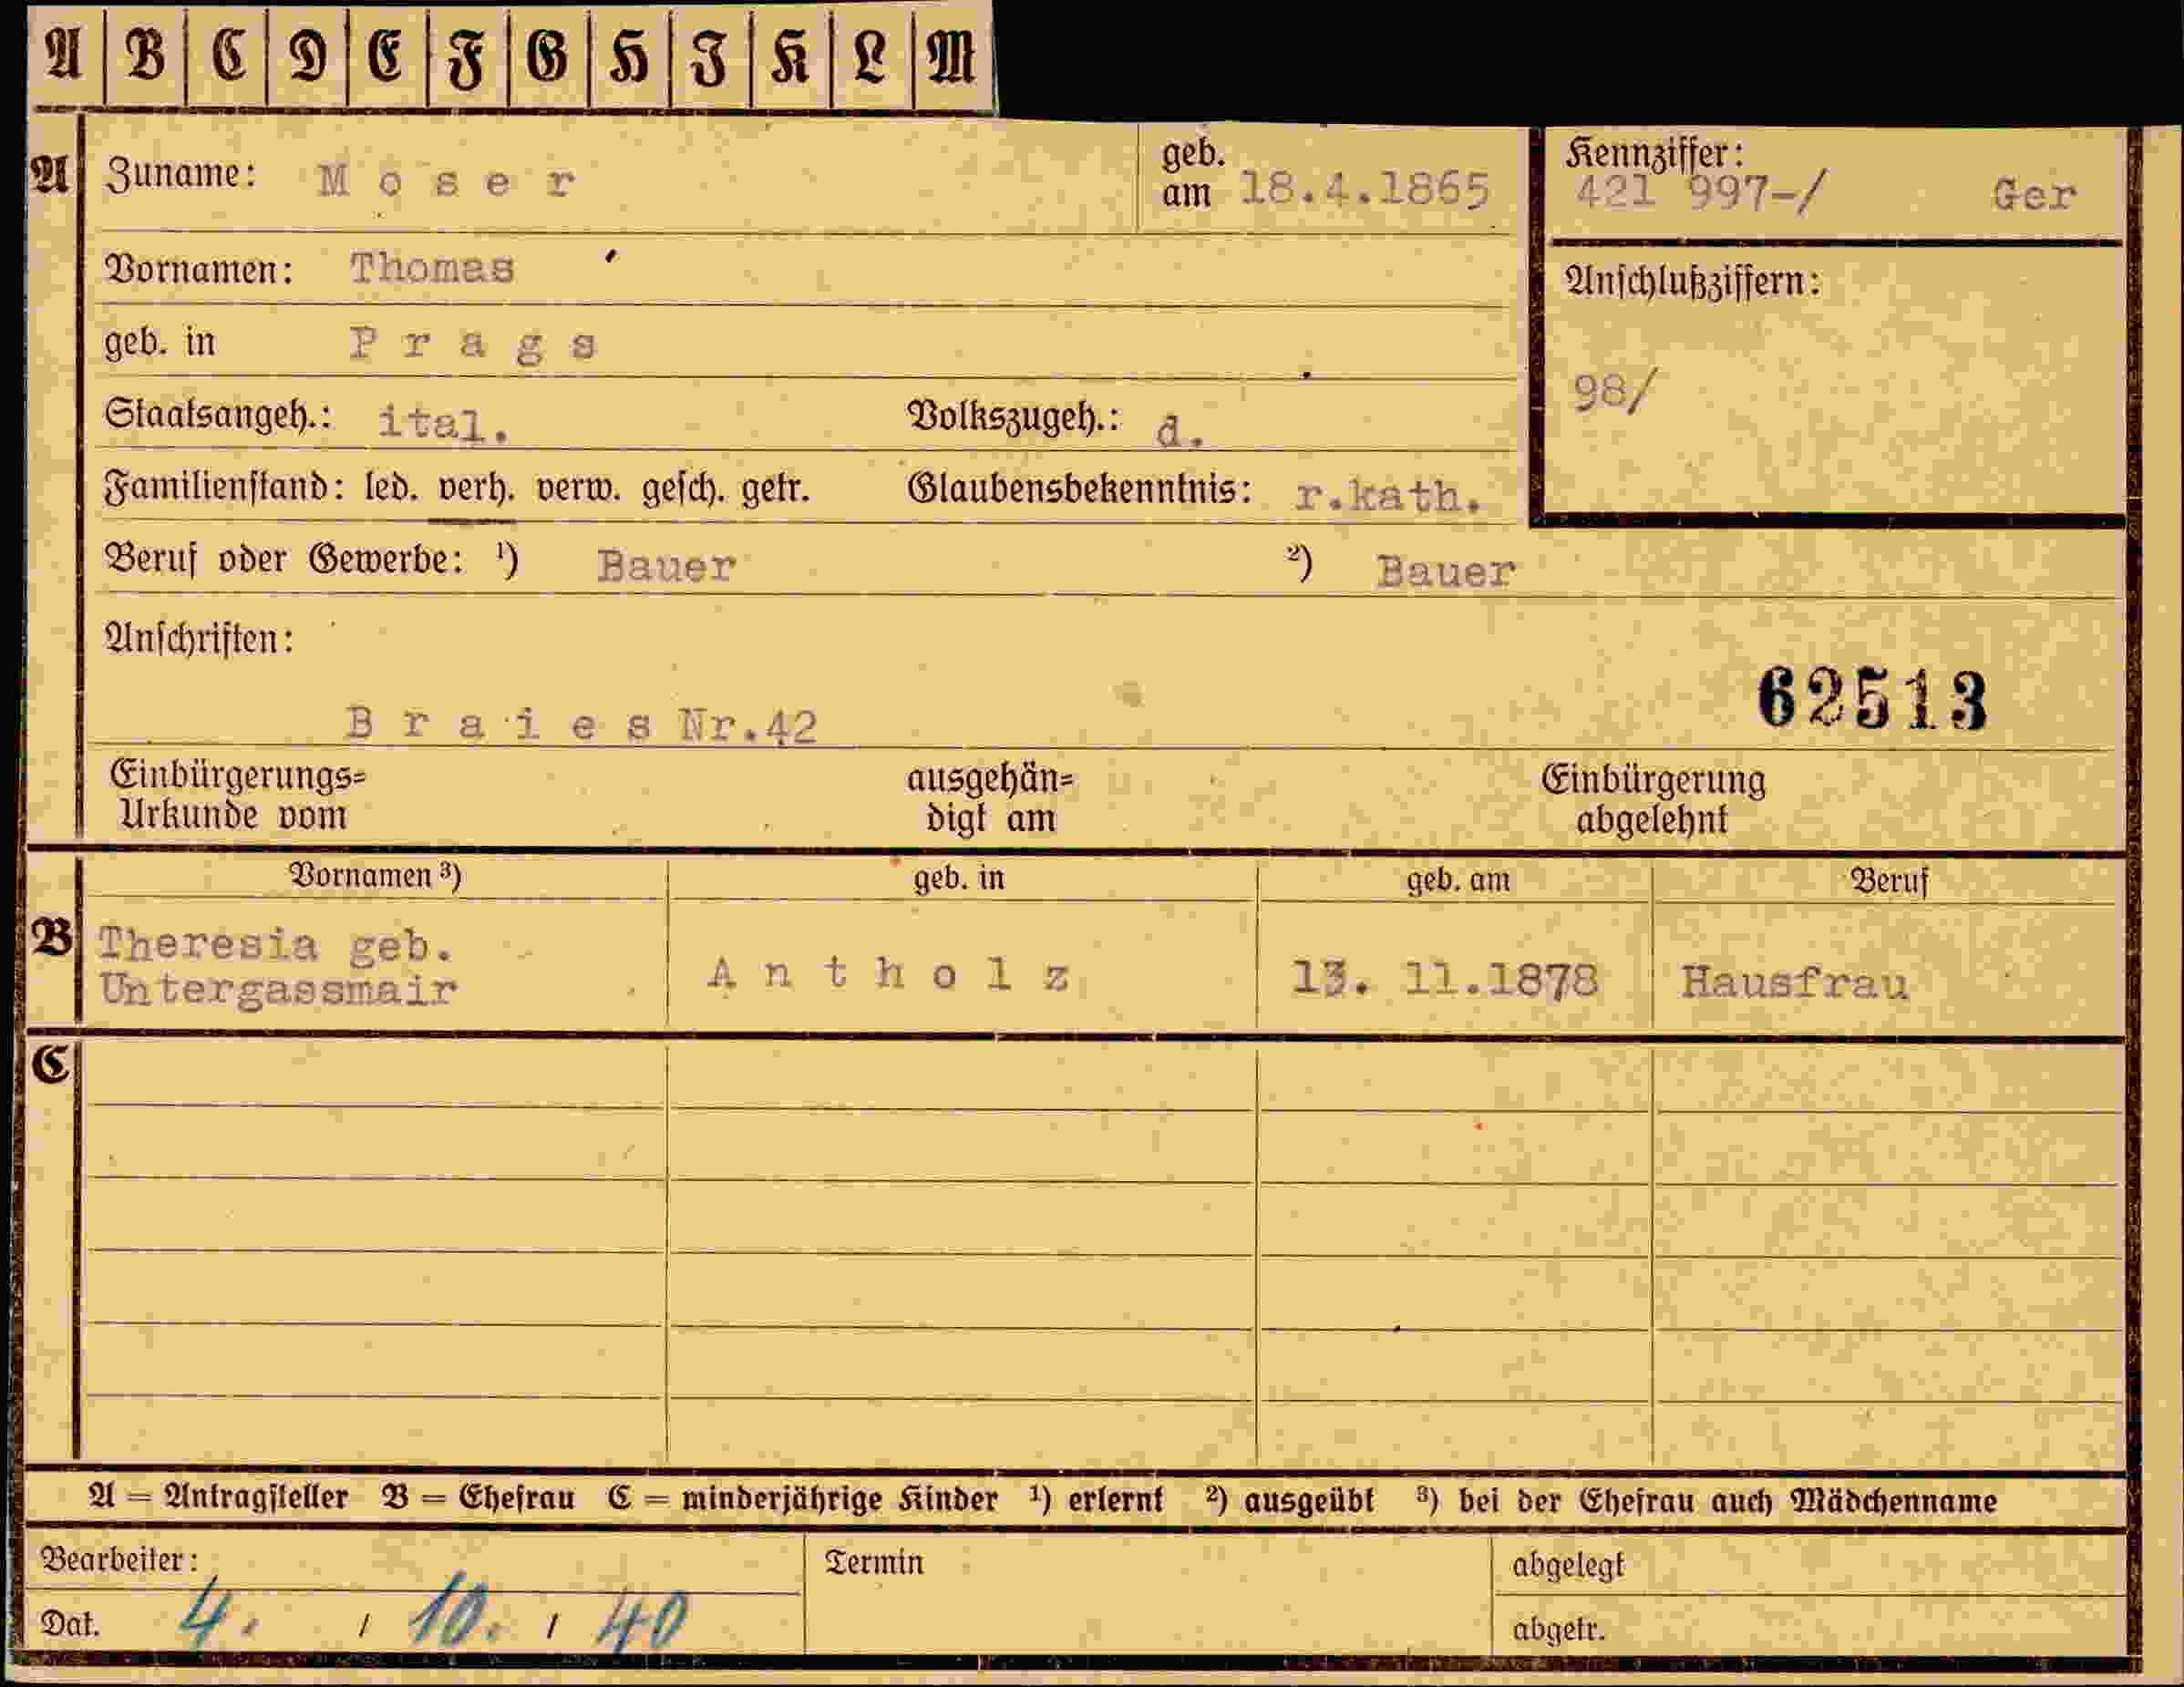 A B C D E F G H I K L M
A Zuname: Moser geb. am 18.4.1865
Kennziffer: 421 997-/ Ger
Vornamen: Thomas
Anschlußziffern:
geb. in Prags
98/
Staatsangeh.: ital. Volkszugeh.: d.
Familienstand: led. verh. verw. gesch. getr. Glaubensbekenntnis: r.kath.
Beruf oder Gewerbe: ¹) Bauer ²) Bauer
Anschriften:
62513
Braies Nr.42
Einbürgerungs= ausgehän= Einbürgerung
Urkunde vom digt am abgelehnt
Vornamen ³) geb. in geb. am Beruf
B Theresia geb.
Untergassmair Antholz 13. 11.1878 Hausfrau
C
A = Antragsteller B = Ehefrau C = minderjährige Kinder ¹) erlernt ²) ausgeübt ³) bei der Ehefrau auch Mädchenname
Bearbeiter: Termin abgelegt
Dat. 4. / 10. / 40 abgetr.